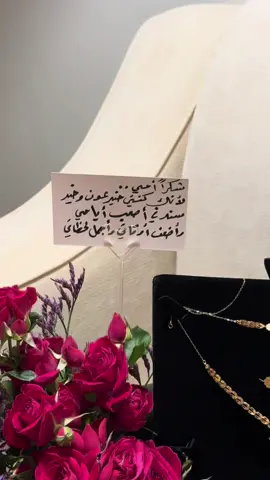 شكراً أحمي ..
لأنك كنتي خير عون وخير
سند في أصعب أيامي
وأضعف أوقاتي وأجمل لحظاتي